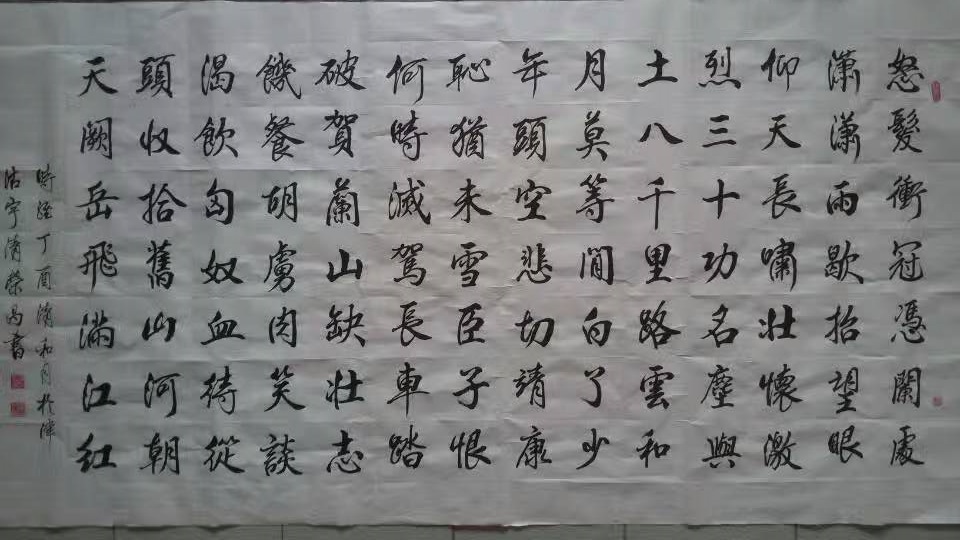 怒髮衝冠憑闌處
瀟瀟雨歇抬望眼
仰天長嘯壯懷激
烈三十功名塵與
土八千里路雲和
月莫等閒白了少
年頭空悲切靖康
恥猶未雪臣子恨
何時滅駕長車踏
破賀蘭山缺壯志
饑餐胡虜肉笑談
渴飲匈奴血待從
頭收拾舊山河朝
天闕岳飛滿江紅
時丁酉清和月於津
沽宇清榮昌書